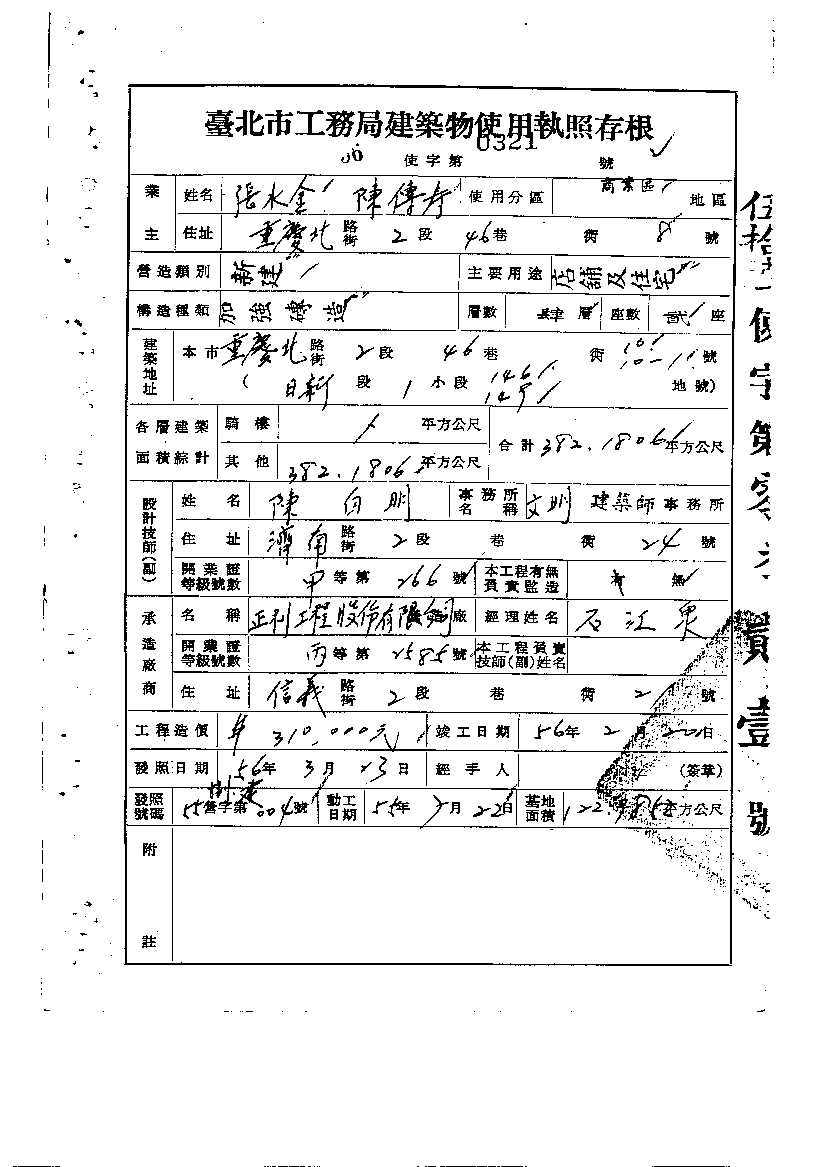 臺北市工務局建築物使用執照存根
56 使字第 0321 號
業主 姓名 張水金 陳傳 使用分區 商業區 地區
住址 重慶北 路街 2 段 46 巷 街 8 號
營造類別 新建 主要用途 店舖及住宅
構造種類 加強磚造 層數 肆 層 座數 貳 座
建築地址 本市 重慶北 路街 2 段 46 巷 街 10 10-1 號
( 日新 段 1 小段 146 145 地號)
各層建築面積綜計 騎樓 平方公尺 合計 382.1806 平方公尺
其他 382.1806 平方公尺
設計技師(副) 姓名 陳自明 事務所名稱 文明建築師事務所
住址 濟南 路街 2 段 巷 街 24 號
開業證等級號數 甲 等第 266 號 本工程有無負責監造 有 無
承造廠商 名稱 正利工程股份有限公司 廠 經理姓名 石江泉
開業證等級號數 丙 等第 2585 號 本工程負責技師(副)姓名
住址 信義 路街 2 段 巷 街 21 號
工程造價 310,000元 竣工日期 56 年 2 月 20 日
發照日期 56 年 3 月 23 日 經手人 (簽章)
發照號碼 55 營字第 004 號 動工日期 55 年 月 22 日 基地面積 平方公尺
附註
伍拾 使字第零 貳壹號